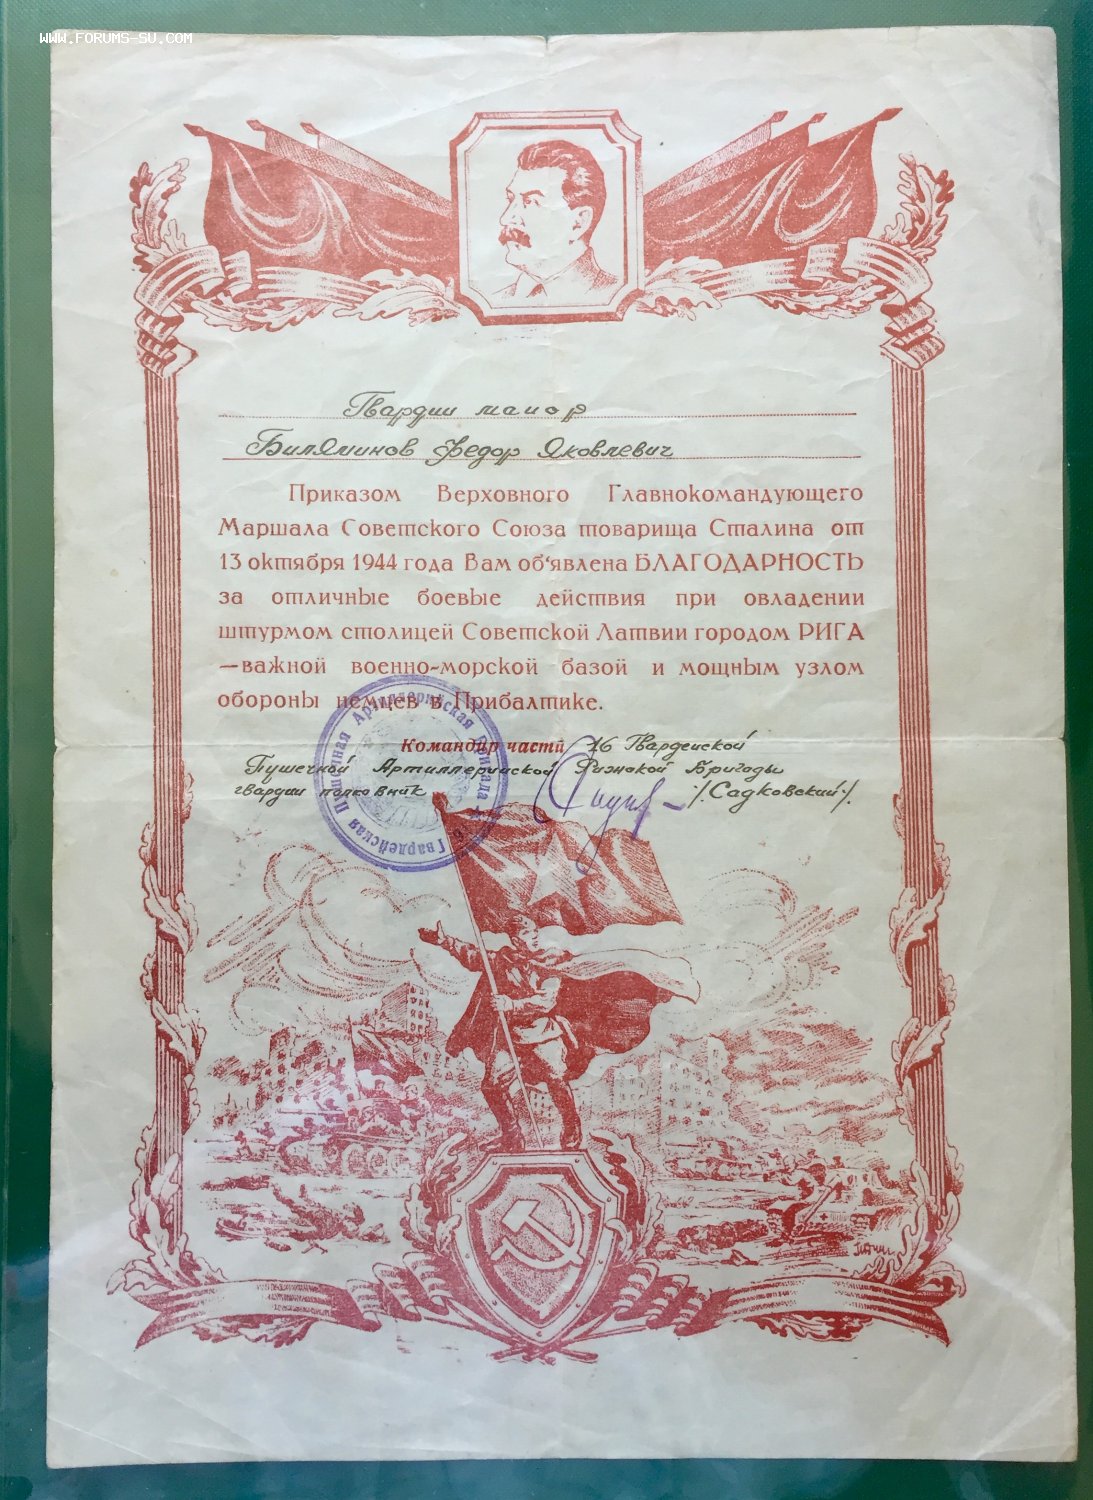 WWW.FORUMS-SU.COM
Гвардии майор
Билялинов Федор Яковлевич
Приказом Верховного Главнокомандующего
Маршала Советского Союза товарища Сталина от
13 октября 1944 года Вам об'явлена БЛАГОДАРНОСТЬ
за отличные боевые действия при овладении
штурмом столицей Советской Латвии городом РИГА
—важной военно-морской базой и мощным узлом
обороны немцев в Прибалтике.
Командир части 16 Гвардейской
Пушечной Артиллерийской Рижской Бригады
гвардии полковник /Садковский/.
Гвардейская Пушечная Артиллерийская Бригада